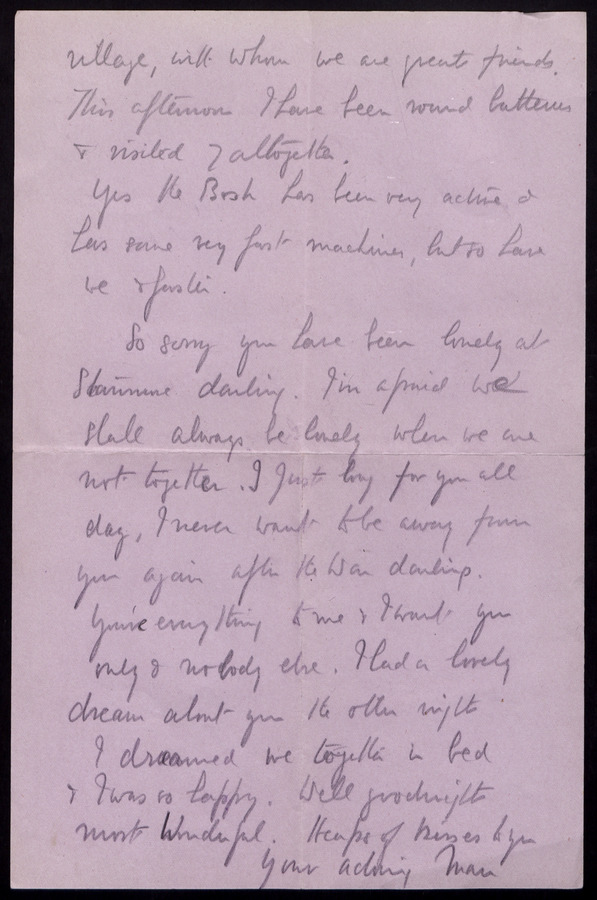 village, with whom we are great friends.
This afternoon I have been round batteries
& visited 7 altogether.
Yes the Bosh has been very active &
has some very fast machines, but so have
we & faster.
So sorry you have been lonely at
darling. I'm afraid we
shall always be lonely when we are
not together. I just long for you all
day, I never want to be away from
you again after the War darling.
You're everything to me & I want you
only & nobody else. I had a lovely
dream about you the other night.
I dreamed we together in bed
& I was so happy. Well goodnight
most Wonderful. Heaps of kisses to you
Your adoring Man